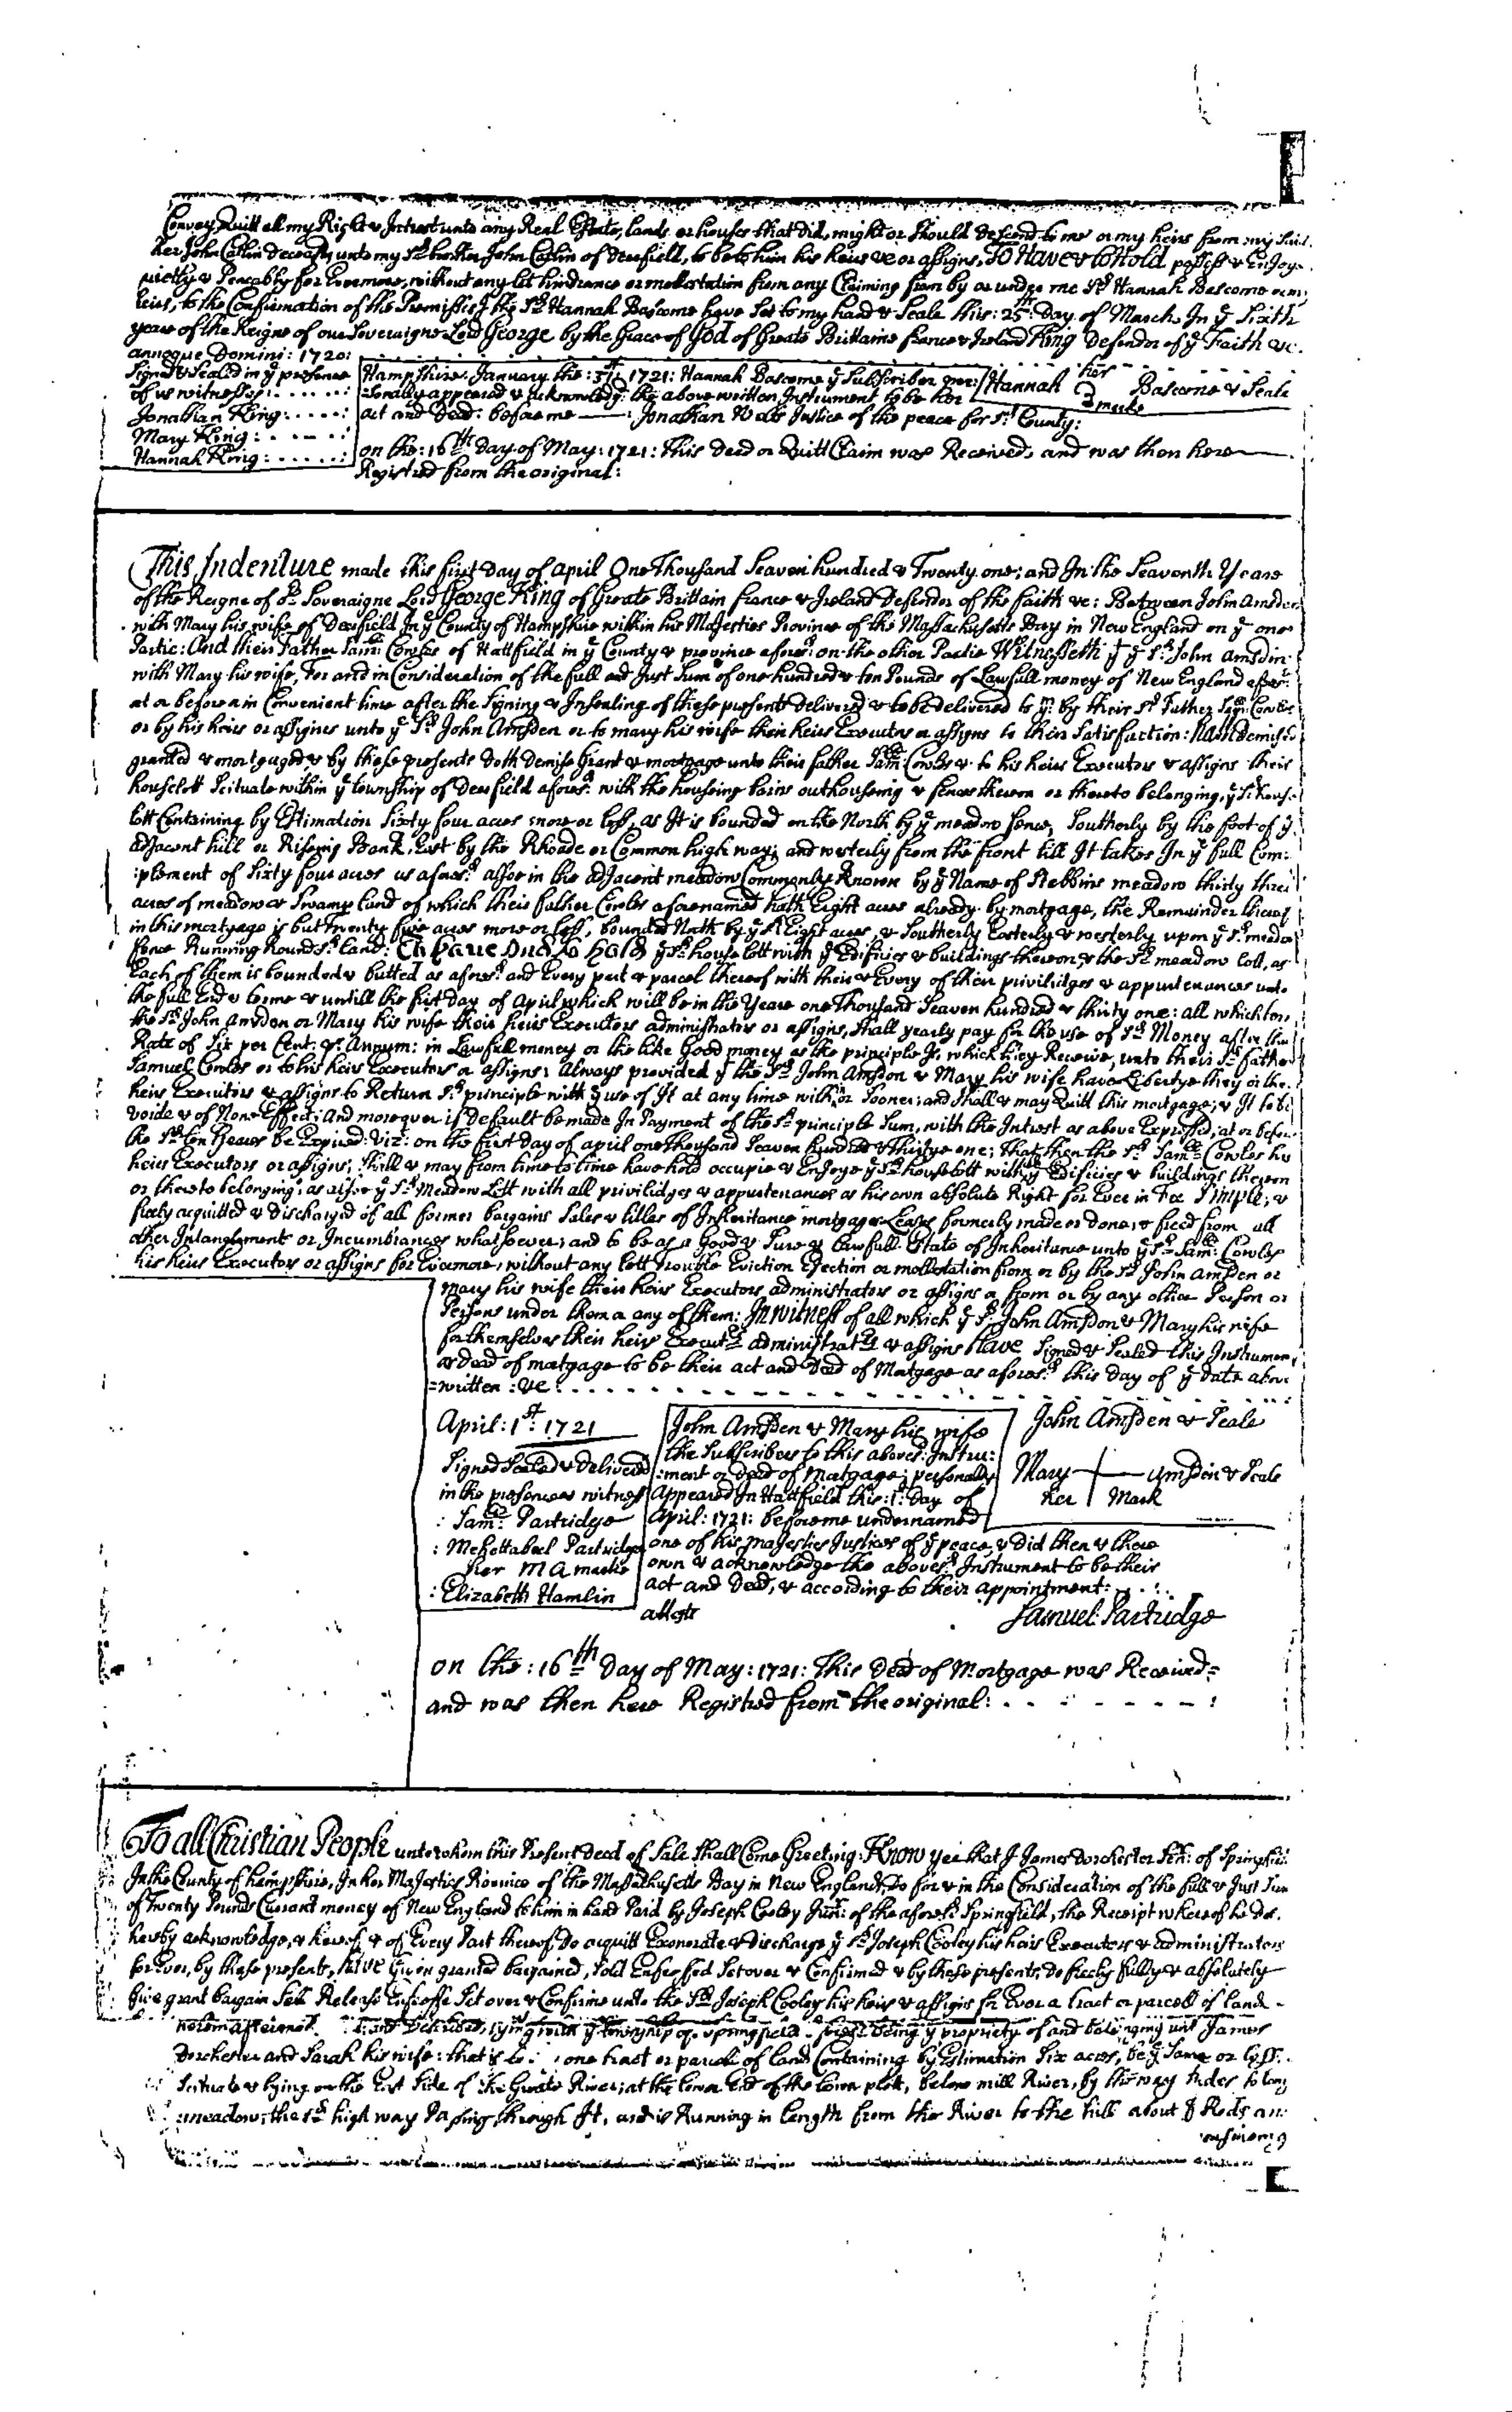 Convey Quitt all my Right & Intrest unto any Real Estate, lands or houses that did, might or should descend to me or my heirs from my
John Catlin deceasd, unto my sd brother John Catlin of Deerfield, to be to him his heirs &c or assigns, To Have & to Hold possess & Enjoy
& Peacably for Evermore, without any lett hindrance or mollestation from any Claiming from by or under me sd Hannah Bascome or my
heirs, to the Confirmation of the Premisses I the sd Hannah Bascome have Set to my hand & Seale this: 25th: Day of March In ye Sixth
yeare of the Reigne of our Soveraigne Lord George by the Grace of God of Greate Brittaine france & Ireland King Defendor of ye Faith &c.
annoque Domini: 1720:
Signed & Sealed in ye presence
of us witnesses:
Jonathan King:
Mary King:
Hannah King:
Hampshire: January the: 1721: Hannah Bascome ye Subscriber per:
=sonally appeared & acknowledg: the above written Instrument to be her
act and Deed: before me — Jonathan Wells Justice of the peace for sd County:
Hannah her mark Bascome & Seale
on the: 16th Day of May: 1721: This deed or Quitt Claim was Received, and was then here
Registred from the original:
This Indenture made this first day of April One Thousand Seaven hundred & Twenty one; and In the Seaventh Yeare
of the Reigne of Soveraigne Lord George King of Greate Brittain france & Ireland Defendor of the faith &c: Between John Amsden
with Mary his wife of Deerfield In ye County of Hampshire within his Majesties Province of the Massachusetts Bay in New England on ye one
Partie: And their Father Samll: Cowles of Hattfield in ye County & province aforesd: on the other Partie Witnesseth yt ye sd John Amsden
with Mary his wife, For and in Consideration of the full and Just Sum of one hundred & ten Pounds of Lawfull money of New England aforesd:
at or before a in Convenient time after the Signing & Insealing of these presents delivered & to be delivered to ym by their sd Father Samll: Cowles
or by his heirs or assignes unto ye sd John Amsden or to mary his wife their heirs Executors or assigns to their Satisfaction: Have demised
granted & mortgaged & by these presents doth Demise Grant & mortgage unto their father Samll: Cowles & to his heirs Executors & assigns their
houselott Scituate within ye township of Deerfield aforesd: with the houseing barns outhouseing & fences thereon or thereto belonging, ye sd house
lott Containing by Estimation Sixty four acres more or less, as It is bounded on the North by ye meadow fence, Southerly by the foot of ye
adjacent hill or Riseing Bank, East by the Rhoade or Common high way; and westerly from the front till It takes In ye full Com:
:plement of Sixty four acres as aforesd: allso in the adjacent meadow Commonly Known by ye Name of Stebbins meadow thirty three
acres of meadow & Swamp Land of which their father Cowles aforenamed hath Eight acres already by mortgage, the Remainder thereof
in this mortgage is but Twenty five acres more or less, bounded North by ye sd Eight acres, & Southerly Easterly & westerly upon ye sd meadow
fence Running Round sd Land: To have and to hold ye sd house lott with ye Edificies & buildings thereon, & the sd meadow lott, as
Each of them is bounded & butted as aforesd: and Every part & parcel thereof with their & Every of their privilidges & appurtenances unto
the full End & terme & untill the first day of April which will be in the Yeare one Thousand Seaven hundred & thirty one: all which term
the sd John Amsden or Mary his wife their heirs Executors administrators or assigns, Shall yearly pay for the use of sd Money after the
Rate of Six per Cent: pr: Annum: in Lawfull money or the like Good money as the principle Is, which they Receive, unto their sd father
Samuel Cowles or to his heirs Executors or assigns: Always provided yt the sd John Amsden & Mary his wife have Libertye they or their
heirs Executors & assigns to Return sd principle with ye use of It at any time within or Sooner; and Shall & may Quitt this mortgage; & It to be
voide & of None Effect: And moreover if default be made In Payment of the sd principle Sum, with the Intrest as above Expressed; at or before
the sd ten Years be Expired: Viz: on the first Day of april one thousand Seaven hundred & Thirtye one; That then the sd Samll: Cowles his
heirs Executors or assigns; Shall & may from time to time have hold occupie & Enjoye ye sd house lott with ye Edificies & buildings thereon
or thereto belonging: as allso ye sd Meadow Lott with all privilidges & appurtenances as his own absolute Right for Ever in Fee Simple; &
freely acquitted & discharged of all former bargains Sales & titles of Inheritance mortgages Leases formerly made or done & freed from all
other Intanglements or Incumbrances whatsoever; and to be as a Good & Sure & Lawfull Estate of Inheritance unto ye sd Samll: Cowles
his heirs Executors or assigns for Evermore, without any lett trouble Eviction Ejection or mollestation from or by the sd John Amsden or
Mary his wife their heirs Executors administrators or assigns or from or by any other Person or
Persons under them or any of them: In witness of all which ye sd: John Amsdon & Mary his wife
for themselves their heirs Executrs administratrs & assigns Have Signed & Sealed this Instrument
as Deed of mortgage to be their act and Deed of Mortgage as aforesd this day of ye date above
=written: &c:
April: 1st: 1721
Signed Sealed & Delivered
in the presence as witness
: Samll: Partridge
: Mehettabeel Partridge
her MA marke
: Elizabeth Hamlin
John Amsden & Mary his wife
the Subscribers to this abovesd: Instru:
:ment or deed of Mortgage; personally
Appeared In Hattfield this: 1st: day of
April: 1721: before me undernamed
one of his majesties Justices of ye peace, & did then & there
own & acknowledge the abovesd Instrument to be their
act and Deed, & according to their appointment:
attests Samuel Partridge
John Amsden & Seale
Mary Amsden & Seale
her Mark
on the: 16th Day of May: 1721: This Deed of Mortgage was Received=
and was then here Registred from the original:
To all Christian People unto whom this Present deed of Sale Shall Come Greeting: Know yee that I James Dorchester Senr: of Springfield
In the County of hampshire, In her Majesties Province of the Massathusetts Bay in New England, Do for & in the Consideration of the full & Just Sum
of Twenty Pounds Currant money of New England to him in hand Paid by Joseph Cooley Junr: of the aforesd: Springfield, the Receipt whereof he doth
hereby acknowledge, & thereof, & of Every Part thereof, Do acquitt Exonerate & Discharge ye sd Joseph Cooley his heirs Executors & administrators
for Ever, by these presents, Have Given granted bargained, Sold Enfeoffed Set over & Confirmed & by these presents, Do freely fully & absolutely
Give grant bargain Sell Release Enfeoffe Set over & Confirme unto the sd Joseph Cooley his heirs & assigns for Ever a tract or parcell of land
and Described, lying with ye township of Springfield being ye propriety of and belonging unto James
Dorchester and Sarah his wife: that is to one tract or parcell of land Containing by Estimation Six acres, be ye Same or less
Scituate & lying on the East Side of the Greate River; at the lower End of the town plott, below mill River, by the way to long
:meadow: the sd high way Passing through It, and is Running in length from the River to the hill about Rods